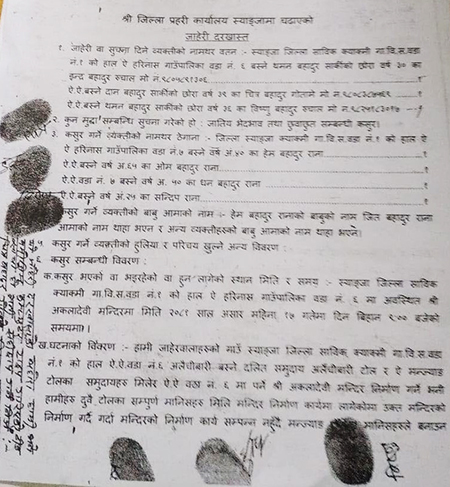 श्री जिल्ला प्रहरी कार्यालय स्याङ्जामा चढाएको
जाहेरी दरखास्त
१. जाहेरी वा सुचना दिने व्यक्तीको नामथर वतन :- स्याङ्जा जिल्ला साविक क्याक्मी गा.वि.स.वडा
नं.१ को हाल ऐ हरिनास गाउँपालिका वडा नं. ६ बस्ने थमन बहादुर सार्कीको छोरा वर्ष ३० का
इन्द्र बहादुर रुचाल मो नं.
ऐ.ऐ.बस्ने दान बहादुर सार्कीको छोरा वर्ष ३९ का चित्र बहादुर गोतामे मो नं.
ऐ.ऐ.बस्ने थमन बहादुर सार्कीको छोरा वर्ष ३६ का विष्णु बहादुर रुचाल मो नं.
२. कुन मुद्दा सम्बन्धि सुचना गरेको हो :- जातिय भेदभाव तथा छुवाछुत सम्बन्धी कसुर।
३. कसुर गर्ने व्यक्तीको नामथर ठेगाना :- स्याङ्जा जिल्ला साविक क्याक्मी गा.वि.स.वडा नं.१ को हाल ऐ
ऐ हरिनास गाउँपालिका वडा नं.७ बस्ने वर्ष अं.४० का हेम बहादुर राना १
ऐ.ऐ.बस्ने वर्ष अं.६५ का ओम बहादुर राना १
ऐ.ऐ.वडा नं. ७ बस्ने वर्ष अं. ५० का धन बहादुर राना १
ऐ.ऐ.बस्ने वर्ष अं.२५ का सन्दिप राना १
कसुर गर्ने व्यक्तीको बाबु आमाको नाम :- हेम बहादुर रानाको बाबुको नाम जित बहादुर राना
आमाको नाम थाहा भएन र अन्य व्यक्तीहरुको बाबु आमाको नाम थाहा भएन।
कसुर गर्ने व्यक्तीको हुलिया र परिचय खुल्ने अन्य विवरण :
कसुर सम्बन्धी विवरण :
क.कसुर भएको वा भइरहेको वा हुन लागेको स्थान मिति र समय :- स्याङ्जा जिल्ला साविक
क्याक्मी गा.वि.स.वडा नं.१ को हाल ऐ हरिनास गाउँपालिका वडा नं. ६ मा अवस्थित श्री
अकलादेवी मन्दिरमा मिति २०८१ साल असार महिना १७ गतेमा दिन बिहान ९:०० बजेको
समयमा।
ख.घटनाको विवरण :- हामी जाहेरवालाहरुको गाउँ स्याङ्जा जिल्ला साविक क्याक्मी गा.वि.स.वडा
नं.१ को हाल ऐ.ऐ.वडा नं.६ अलैचीबारी बस्ने दलित समुदाय अलैचीबारी टोल र ऐ मन्ज्याङ
टोलका समुदायहरु मिलेर ऐ.ऐ वडा नं. ६ मा पर्ने श्री अकलादेवी मन्दिर निर्माण गर्ने भनी
हामीहरु दुवै टोलका सम्पुर्ण मानिसहरु मिलि मन्दिर निर्माण कार्यमा लागेकोमा उक्त मन्दिरको
निर्माण गर्दै गर्दा मन्दिरको निर्माण कार्य सम्पन्न नहुँदै मन्ज्याङ मानिसहरुले बनाउन